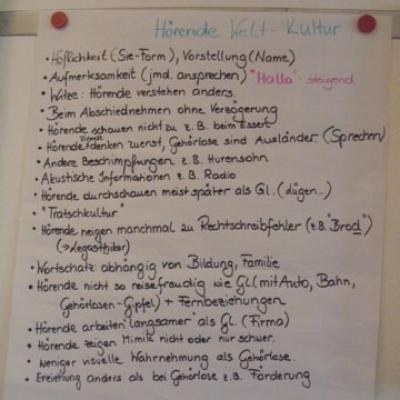 Hörende Welt-Kultur
• Höflichkeit (Sie-Form), Vorstellung (Name)
• Aufmerksamkeit (jmd. ansprechen) "Hallo" - steigend
• Witze: Hörende verstehen anders.
• Beim Abschiednehmen ohne Verzögerung
• Hörende schauen nicht zu z.B. beim Essen
• Hörende denken zuerst, Gehörlose sind Ausländer. (Sprechen)
• Andere Beschimpfungen z.B. Hurensohn
• Akustische Informationen z.B. Radio
• Hörende durchschauen meist später als Gl. (lügen...)
• "Tratschkultur"
• Hörende neigen manchmal zu Rechtschreibfehler (z.B. "Brod")
(→ Legastniker)
• Wortschatz: abhängig von Bildung, Familie
• Hörende nicht so reisefreudig wie Gl. (mit Auto, Bahn,
Gehörlosen-Gipfel) + Fernbeziehungen
• Hörende arbeiten "langsamer" als Gl. (Firma)
• Hörende zeigen Mimik nicht oder nur schwer.
• weniger visuelle Wahrnehmung als Gehörlose.
• Erziehung anders als bei Gehörlose z.B. Förderung